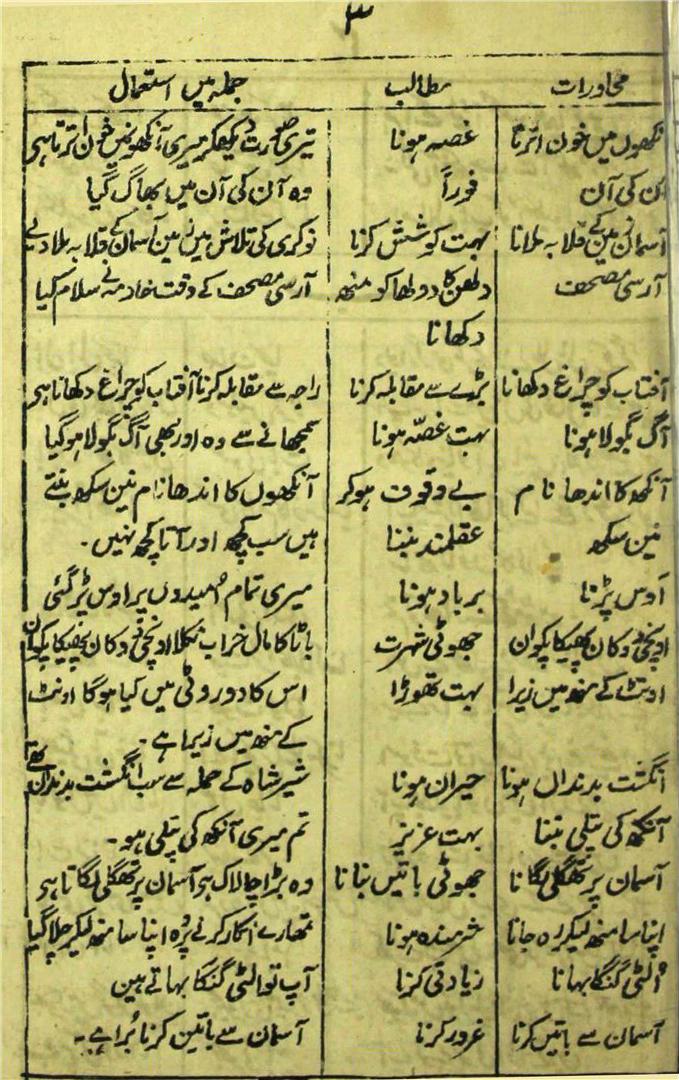 ۳
محاورات مطالب جملہ میں استعمال
نکھوں میں خون اترنا غصہ ہونا تیری صورت دیکھکر میری آنکھونمیں خون اترتا ہی
ن کی آن فوراً وہ آن کی آن میں بھاگ گیا
آسمان زمین کے قلابہ ملانا بہت کوشش کرنا نوکری کی تلاش میں زمین آسمان کے قلابہ ملا دیے
آرسی مصحف دلھن کا دولھا کو منھ آرسی مصحف کے وقت خادم نے سلام کیا
دکھانا
آفتاب کو چراغ دکھانا بڑے سے مقابلہ کرنا راجہ سے مقابلہ کرنا آفتاب کو چراغ دکھانا ہی
آگ بگولا ہونا بہت غصّہ ہونا سمجھانے سے وہ اور بھی آگ بگولا ہو گیا
آنکھ کا اندھا نام بے وقوف ہوکر آنکھوں کا اندھا نام نین سکھ بنتے
نین سکھ عقلمند بننا ہیں سب کچھ اور آتا کچھ نہیں۔
اوس پڑنا برباد ہونا میری تمام اُمیدوں پر اوس پڑ گئی
اونچی دوکان پھیکا پکوان جھوٹی شہرت باٹا کا مال خراب نکلا اونچی دوکان پھیکا پکوان
اونٹ کے منھ میں زیرا بہت تھوڑا اس کا دو روٹی میں کیا ہو گا اونٹ
کے منھ میں زیرا ہے۔
انگشت بدنداں ہونا حیران ہونا شیر شاہ کے حملہ سے سب انگشت بدنداں تھے
آنکھ کی پتلی بننا بہت عزیز تم میری آنکھ کی پتلی ہو۔
آسمان پر تھگلی لگانا جھوٹی باتیں بنانا وہ بڑا چالاک ہی آسمان پر تھگلی لگاتا ہی
اپنا سا منھ لیکر رہ جانا شرمندہ ہونا تمھارے انکار کرنے پر وُہ اپنا سا منھ لیکر چلا گیا
اُلٹی گنگا بہانا زیادتی کرنا آپ تو الٹی گنگا بہاتے ہین
آسمان سے باتیں کرنا غرور کرنا آسمان سے باتین کرنا بُرا ہے۔